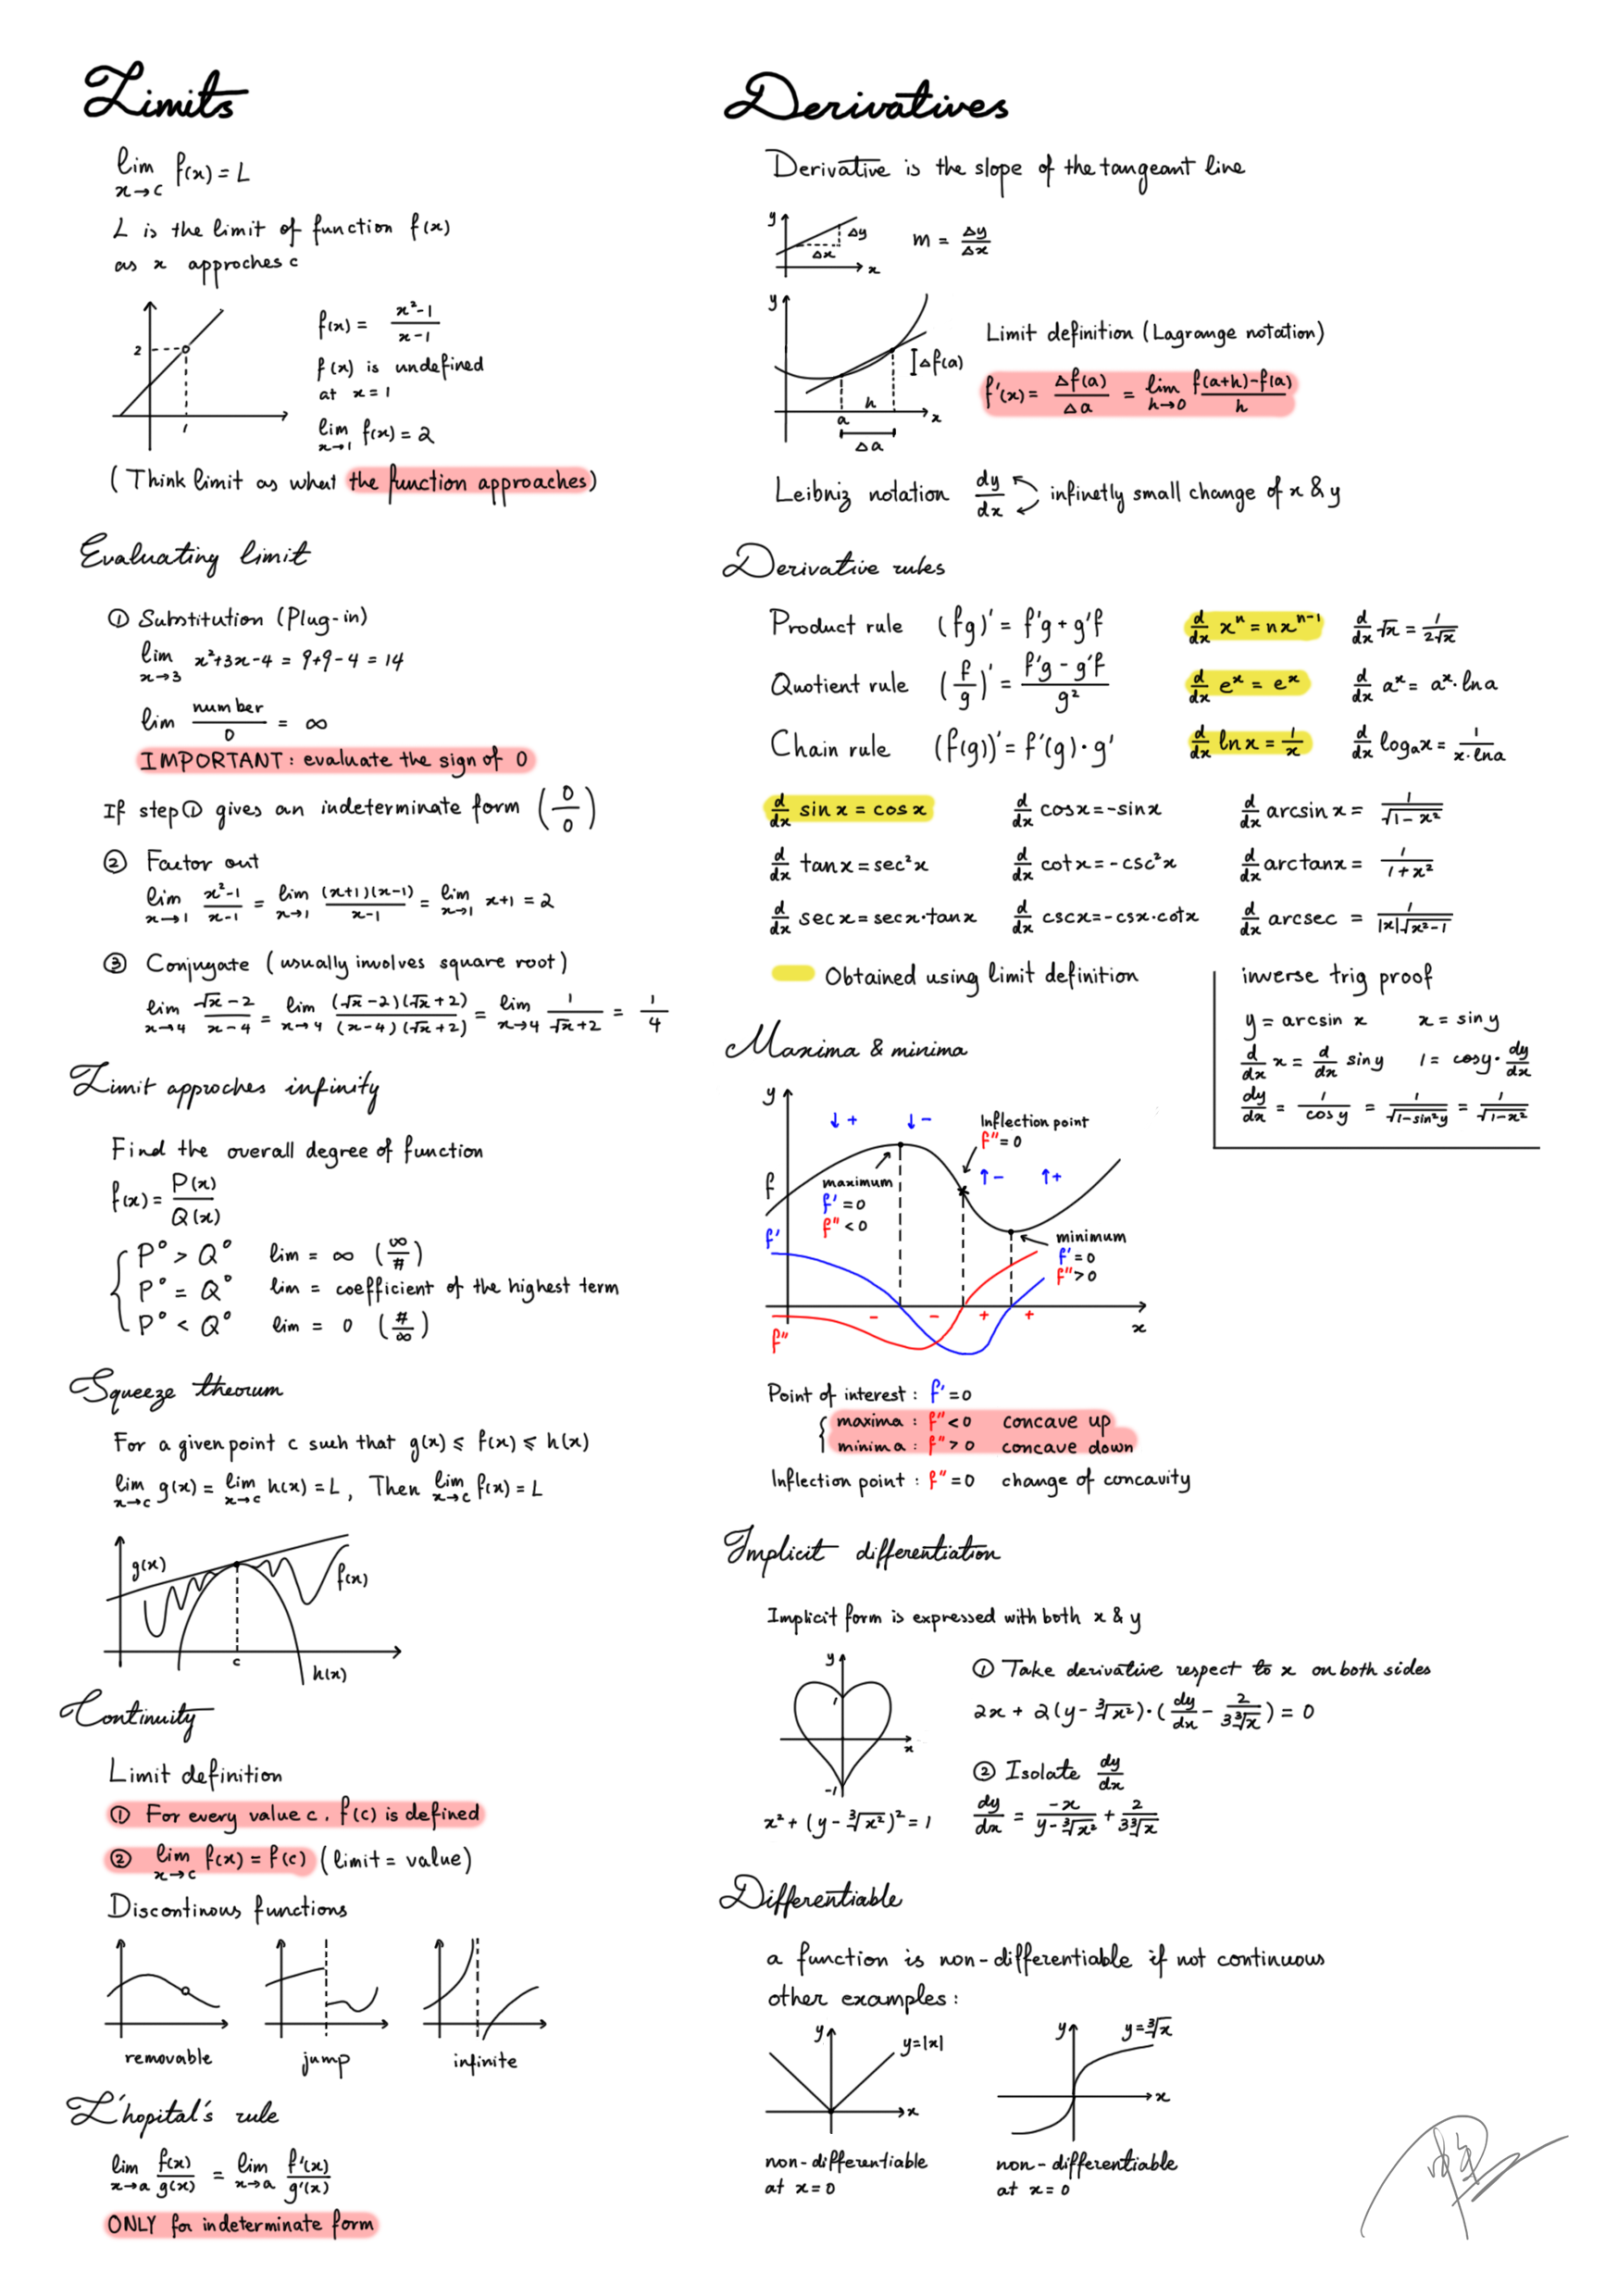 Limits
lim x→c f(x) = L
L is the limit of function f(x)
as x approches c
2
1
f(x) = x²-1 / x-1
f(x) is undefined
at x = 1
lim x→1 f(x) = 2
(Think limit as what the function approaches)
Evaluating limit
① Substitution (Plug-in)
lim x→3 x²+3x-4 = 9+9-4 = 14
lim number / 0 = ∞
IMPORTANT: evaluate the sign of 0
If step① gives an indeterminate form (0/0)
② Factor out
lim x→1 x²-1 / x-1 = lim x→1 (x+1)(x-1) / x-1 = lim x→1 x+1 = 2
③ Conjugate (usually involves square root)
lim x→4 √x-2 / x-4 = lim x→4 (√x-2)(√x+2) / (x-4)(√x+2) = lim x→4 1 / √x+2 = 1/4
Limit approches infinity
Find the overall degree of function
f(x) = P(x) / Q(x)
P° > Q° lim = ∞ (∞/#)
P° = Q° lim = coefficient of the highest term
P° < Q° lim = 0 (#/∞)
Squeeze theorum
For a given point c such that g(x) ⩽ f(x) ⩽ h(x)
lim x→c g(x) = lim x→c h(x) = L, Then lim x→c f(x) = L
g(x)
f(x)
c
h(x)
Continuity
Limit definition
① For every value c, f(c) is defined
② lim x→c f(x) = f(c) (limit = value)
Discontinous functions
removable jump infinite
L'hopital's rule
lim x→a f(x) / g(x) = lim x→a f'(x) / g'(x)
ONLY for indeterminate form
Derivatives
Derivative is the slope of the tangeant line
y
Δy
Δx
x
m = Δy / Δx
y
Δf(a)
h
a
x
Δa
Limit definition (Lagrange notation)
f'(x) = Δf(a) / Δa = lim h→0 f(a+h)-f(a) / h
Leibniz notation dy/dx infinetly small change of x & y
Derivative rules
Product rule (fg)' = f'g + g'f d/dx xⁿ = nxⁿ⁻¹ d/dx √x = 1 / 2√x
Quotient rule (f/g)' = f'g - g'f / g² d/dx eˣ = eˣ d/dx aˣ = aˣ·ln a
Chain rule (f(g))' = f'(g)·g' d/dx ln x = 1/x d/dx logₐx = 1 / x·lna
d/dx sin x = cos x d/dx cosx = -sinx d/dx arcsin x = 1 / √1-x²
d/dx tanx = sec²x d/dx cotx = -csc²x d/dx arctanx = 1 / 1+x²
d/dx secx = secx·tanx d/dx cscx = -csx·cotx d/dx arcsec = 1 / |x|√x²-1
Obtained using limit definition
inverse trig proof
y = arcsin x x = sin y
d/dx x = d/dx sin y 1 = cosy·dy/dx
dy/dx = 1 / cos y = 1 / √1-sin²y = 1 / √1-x²
Maxima & minima
y
↓+ ↓-
Inflection point
f''=0
↑- ↑+
f
maximum
f'=0
f''<0
f'
minimum
f'=0
f''>0
- - + +
x
f''
Point of interest: f'=0
maxima: f''<0 concave up
minima: f''>0 concave down
Inflection point: f''=0 change of concavity
Implicit differentiation
Implicit form is expressed with both x & y
y
1
x
-1
x² + (y - ∛x²)² = 1
① Take derivative respect to x on both sides
2x + 2(y - ∛x²)·(dy/dx - 2 / 3∛x) = 0
② Isolate dy/dx
dy/dx = -x / y-∛x² + 2 / 3∛x
Differentiable
a function is non-differentiable if not continuous
other examples:
y
y=|x|
x
non-differentiable
at x=0
y
y=∛x
x
non-differentiable
at x=0